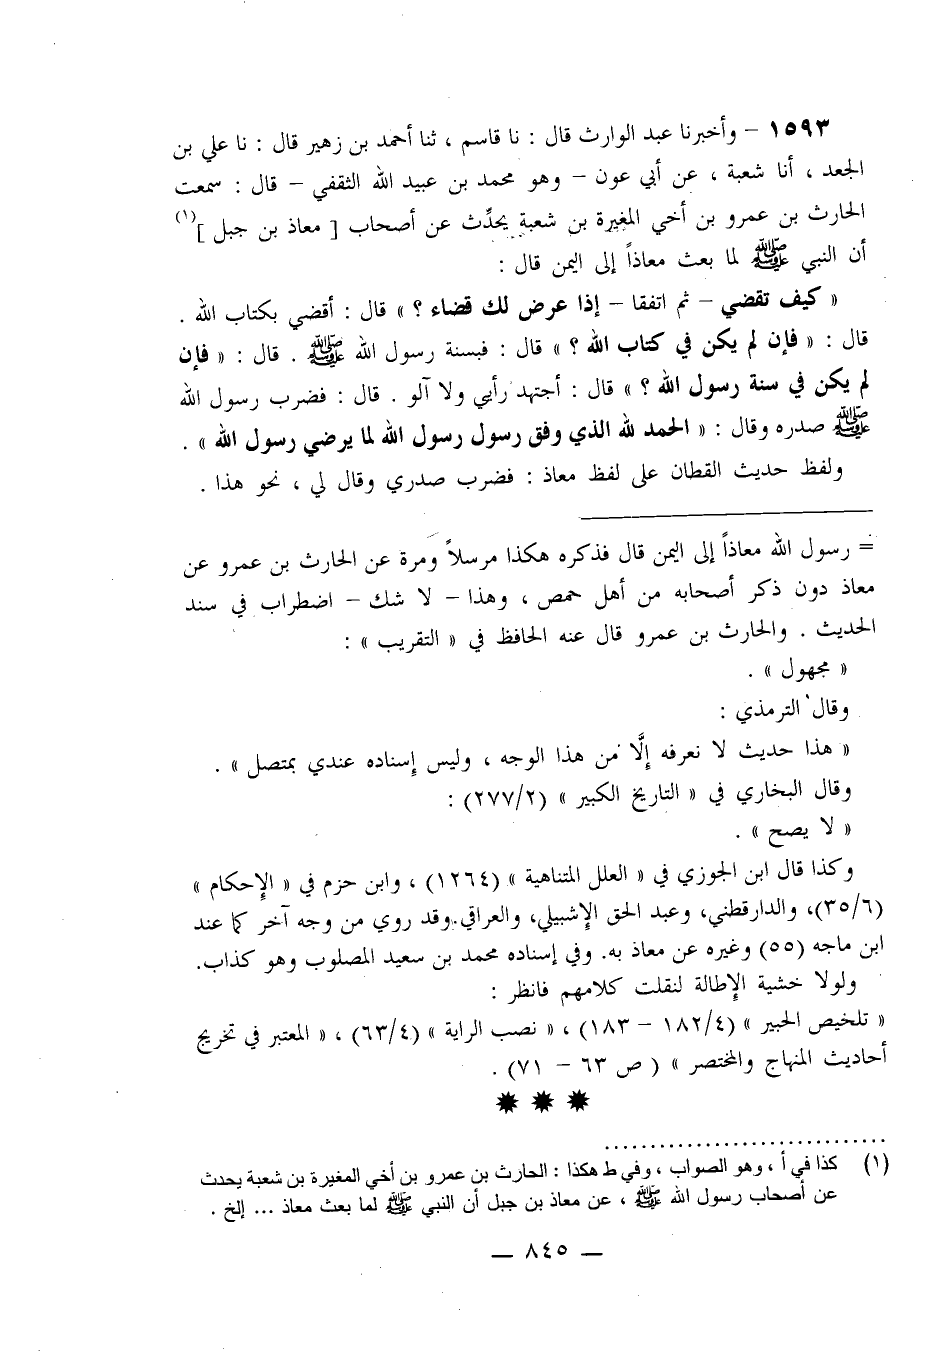 ١٥٩٣ – وأخبرنا عبد الوارث قال : نا قاسم ، ثنا أحمد بن زهير قال : نا علي بن
الجعد ، أنا شعبة ، عن أبي عون – وهو محمد بن عبيد الله الثقفي – قال : سمعت
الحارث بن عمرو بن أخي المغيرة بن شعبة يحدِّث عن أصحاب [ معاذ بن جبل ](١)
أن النبي ﷺ لما بعث معاذاً إلى اليمن قال :
« كيف تقضي – ثم اتفقا – إذا عرض لك قضاء ؟ » قال : أقضي بكتاب الله .
قال : « فإن لم يكن في كتاب الله ؟ » قال : فبسنة رسول الله ﷺ . قال : « فإن
لم يكن في سنة رسول الله ؟ » قال : أجتهد رأيي ولا آلو . قال : فضرب رسول الله
ﷺ صدره وقال : « الحمد لله الذي وفق رسول رسول الله لما يرضي رسول الله » .
ولفظ حديث القطان على لفظ معاذ : فضرب صدري وقال لي ، نحو هذا .
= رسول الله معاذاً إلى اليمن قال فذكره هكذا مرسلاً ومرة عن الحارث بن عمرو عن
معاذ دون ذكر أصحابه من أهل حمص ، وهذا – لا شك – اضطراب في سند
الحديث . والحارث بن عمرو قال عنه الحافظ في « التقريب » :
« مجهول » .
وقال الترمذي :
« هذا حديث لا نعرفه إلَّا من هذا الوجه ، وليس إسناده عندي بمتصل » .
وقال البخاري في « التاريخ الكبير » (٢٧٧/٢) :
« لا يصح » .
وكذا قال ابن الجوزي في « العلل المتناهية » (١٢٦٤) ، وابن حزم في « الإحكام »
(٣٥/٦)، والدارقطني، وعبد الحق الإشبيلي، والعراقي. وقد روي من وجه آخر كما عند
ابن ماجه (٥٥) وغيره عن معاذ به. وفي إسناده محمد بن سعيد المصلوب وهو كذاب.
ولولا خشية الإطالة لنقلت كلامهم فانظر :
« تلخيص الحبير » (١٨٢/٤ – ١٨٣) ، « نصب الراية » (٦٣/٤) ، « المعتبر في تخريج
أحاديث المنهاج والمختصر » ( ص ٦٣ – ٧١) .
(١) كذا في أ ، وهو الصواب ، وفي ط هكذا : الحارث بن عمرو بن أخي المغيرة بن شعبة يحدث
عن أصحاب رسول الله ﷺ ، عن معاذ بن جبل أن النبي ﷺ لما بعث معاذ ... إلخ .
— ٨٤٥ —